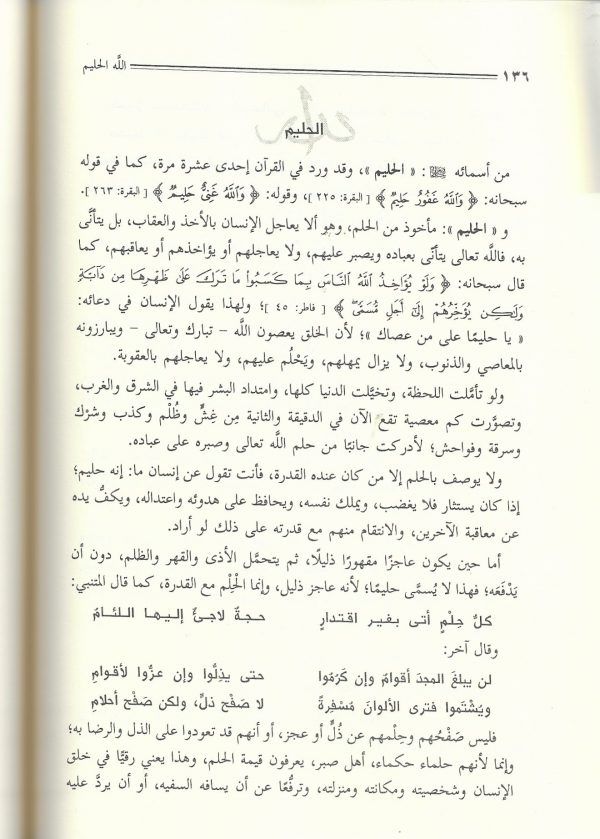 ١٣٦ اللَّه الحليم
الحليم
من أسمائه ﷻ: « الحليم »، وقد ورد في القرآن إحدى عشرة مرة، كما في قوله
سبحانه: ﴿ وَٱللَّهُ غَفُورٌ حَلِيمٌ ﴾ [ البقرة: ٢٢٥ ]، وقوله: ﴿ وَٱللَّهُ غَنِىٌّ حَلِيمٌ ﴾ [ البقرة: ٢٦٣ ].
و « الحليم »: مأخوذ من الحلم، وهو ألا يعاجل الإنسان بالأخذ والعقاب، بل يتأنَّى
به، فاللَّه تعالى يتأنَّى بعباده ويصبر عليهم، ولا يعاجلهم أو يؤاخذهم أو يعاقبهم، كما
قال سبحانه: ﴿ وَلَوْ يُؤَاخِذُ ٱللَّهُ ٱلنَّاسَ بِمَا كَسَبُوا۟ مَا تَرَكَ عَلَىٰ ظَهْرِهَا مِن دَآبَّةٍ
وَلَٰكِن يُؤَخِّرُهُمْ إِلَىٰٓ أَجَلٍ مُّسَمًّى ﴾ [ فاطر: ٤٥ ]؛ ولهذا يقول الإنسان في دعائه:
« يا حليمًا على من عصاك »؛ لأن الخلق يعصون اللَّه – تبارك وتعالى – ويبارزونه
بالمعاصي والذنوب، ولا يزال يمهلهم، ويَحْلُم عليهم، ولا يعاجلهم بالعقوبة.
ولو تأمَّلت اللحظة، وتخيَّلت الدنيا كلها، وامتداد البشر فيها في الشرق والغرب،
وتصوَّرت كم معصية تقع الآن في الدقيقة والثانية مِن غِشٍّ وظُلْم وكذب وشرْك
وسرقة وفواحش؛ لأدركت جانبًا من حلم اللَّه تعالى وصبره على عباده.
ولا يوصف بالحلم إلا من كان عنده القدرة، فأنت تقول عن إنسان ما: إنه حليم؛
إذا كان يستثار فلا يغضب، ويملك نفسه، ويحافظ على هدوئه واعتداله، ويكفُّ يده
عن معاقبة الآخرين، والانتقام منهم مع قدرته على ذلك لو أراد.
أما حين يكون عاجزًا مقهورًا ذليلًا، ثم يتحمَّل الأذى والقهر والظلم، دون أن
يَدْفَعَه؛ فهذا لا يُسمَّى حليمًا؛ لأنه عاجز ذليل، وإنما الْحِلْم مع القدرة، كما قال المتنبي:
كلّ حِلْمٍ أتى بغير اقتدارٍ حجةٌ لاجئٌ إليها اللئامُ
وقال آخر:
لن يبلغَ المجدَ أقوامٌ وإن كَرُمُوا حتى يذِلُّوا وإن عزُّوا لأقوامِ
ويُشْتَموا فترى الألوانَ مُسْفِرةً لا صَفْح ذلٍّ، ولكن صَفْح أحلامِ
فليس صَفْحُهم وحِلْمهم عن ذُلٍّ أو عجز، أو أنهم قد تعودوا على الذل والرضا به؛
وإنما لأنهم حلماء حكماء، أهل صبر، يعرفون قيمة الحلم، وهذا يعني رقيًّا في خلق
الإنسان وشخصيته ومكانته ومنزلته، وترفُّعًا عن أن يسافه السفيه، أو أن يردَّ عليه